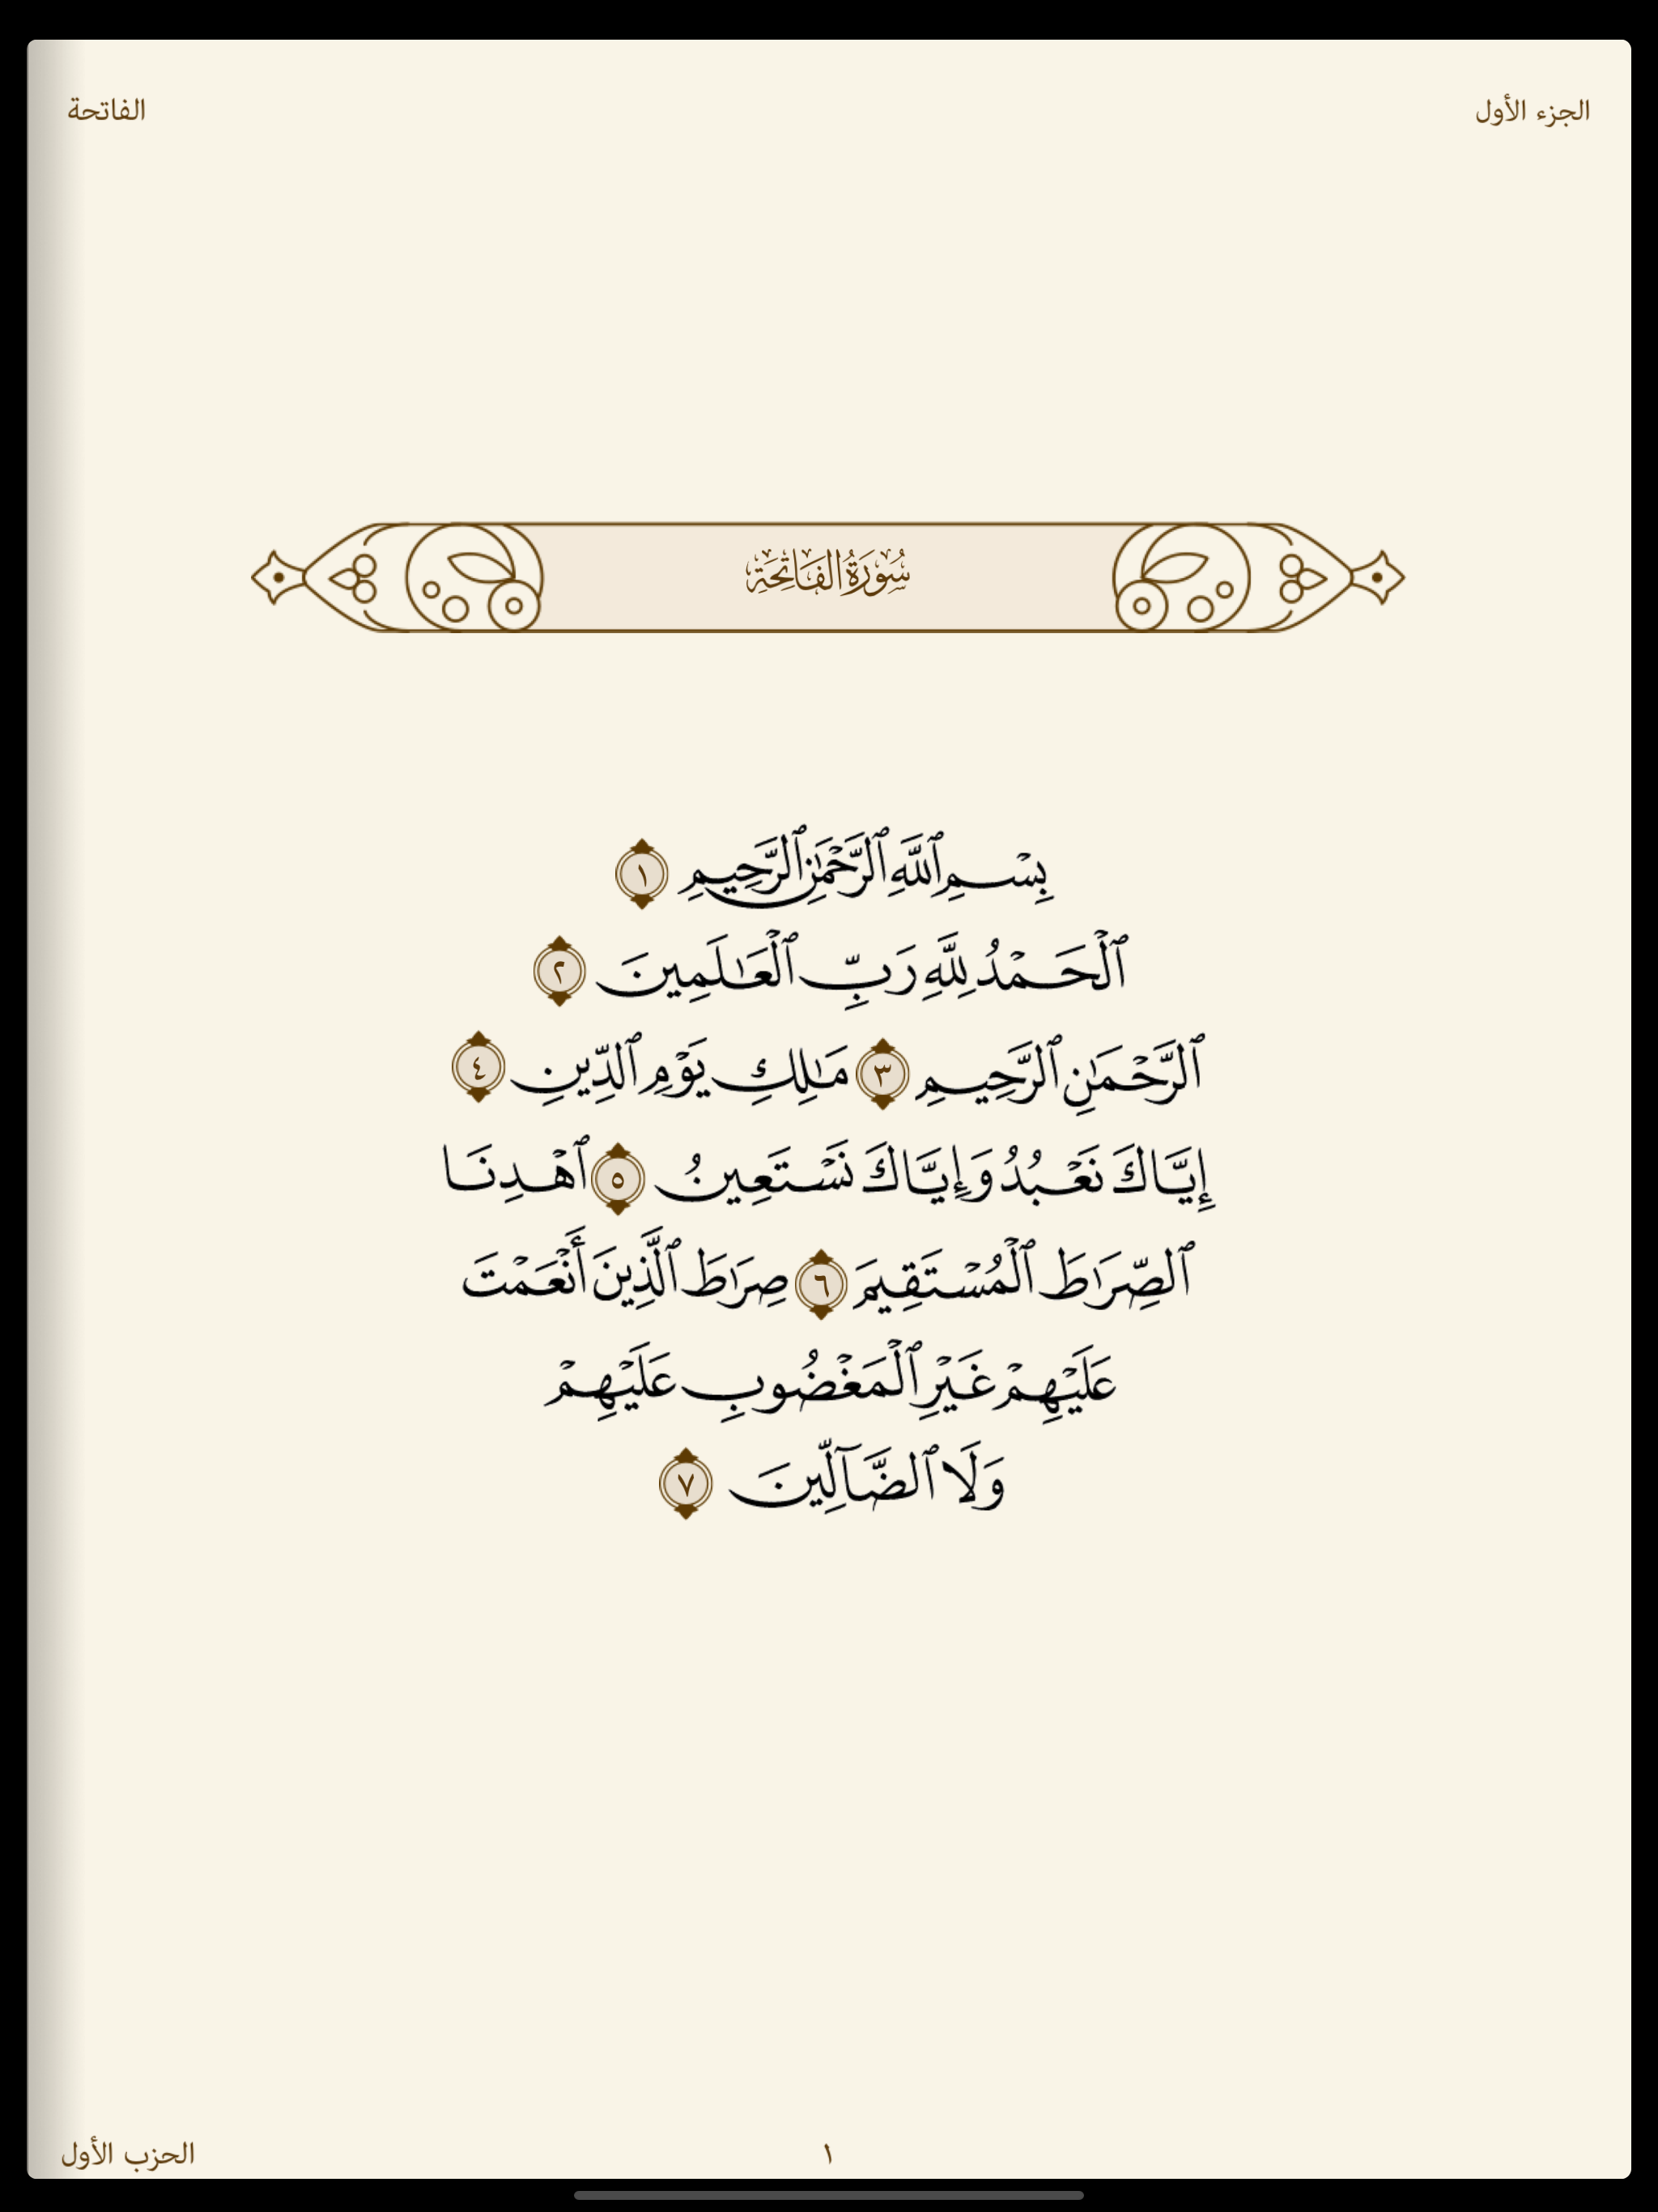 الجزء الأول
الفاتحة
سُورَةُ الفَاتِحَةِ
بِسْمِ ٱللَّهِ ٱلرَّحْمَٰنِ ٱلرَّحِيمِ ١
ٱلْحَمْدُ لِلَّهِ رَبِّ ٱلْعَٰلَمِينَ ٢
ٱلرَّحْمَٰنِ ٱلرَّحِيمِ ٣ مَٰلِكِ يَوْمِ ٱلدِّينِ ٤
إِيَّاكَ نَعْبُدُ وَإِيَّاكَ نَسْتَعِينُ ٥ ٱهْدِنَا
ٱلصِّرَٰطَ ٱلْمُسْتَقِيمَ ٦ صِرَٰطَ ٱلَّذِينَ أَنْعَمْتَ
عَلَيْهِمْ غَيْرِ ٱلْمَغْضُوبِ عَلَيْهِمْ
وَلَا ٱلضَّآلِّينَ ٧
١
الحزب الأول